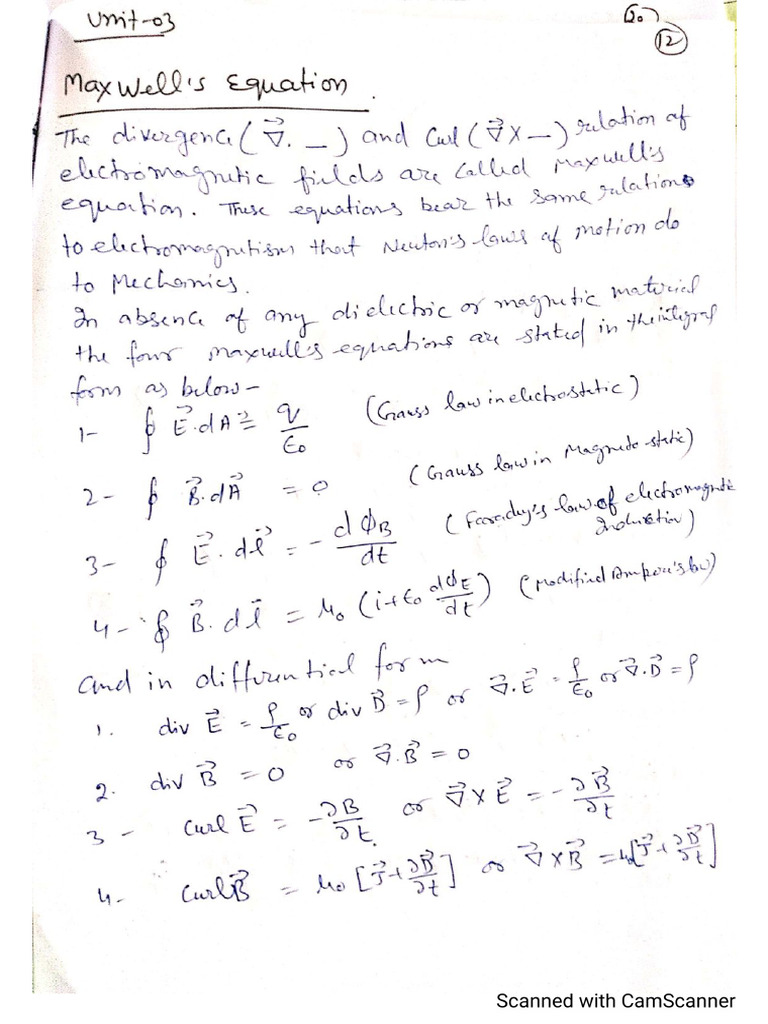 Unit-03
20
12
Maxwell's Equation.
The divergence (∇⃗. _) and Curl (∇⃗ X _) relation of
electromagnetic fields are called Maxwell's
equation. These equations bear the same relations
to electromagnetism that Newton's laws of motion do
to Mechanics.
In absence of any dielectric or magnetic material
the four maxwell's equations are stated in the integral
form as below-
1- ∮ E⃗.dA⃗ = q/ϵ₀ (Gauss law in electrostatic)
2- ∮ B⃗.dA⃗ = 0 (Gauss law in Magneto-static)
3- ∮ E⃗.dl⃗ = - dΦ_B/dt (Faraday's law of electromagnetic
Induction)
4- ∮ B⃗.dl⃗ = μ₀ (i+ϵ₀ dΦ_E/dt) (Modified Ampere's law)
and in differential form
1. div E⃗ = ρ/ϵ₀ or div D⃗ = ρ or ∇⃗.E⃗ = ρ/ϵ₀ or ∇⃗.D⃗ = ρ
2. div B⃗ = 0 or ∇⃗.B⃗ = 0
3- Curl E⃗ = -∂B/∂t. or ∇⃗ X E⃗ = -∂B⃗/∂t
4- Curl B⃗ = μ₀ [J⃗+∂D⃗/∂t] or ∇⃗ X B⃗ = μ₀[J⃗+∂D⃗/∂t]
Scanned with CamScanner